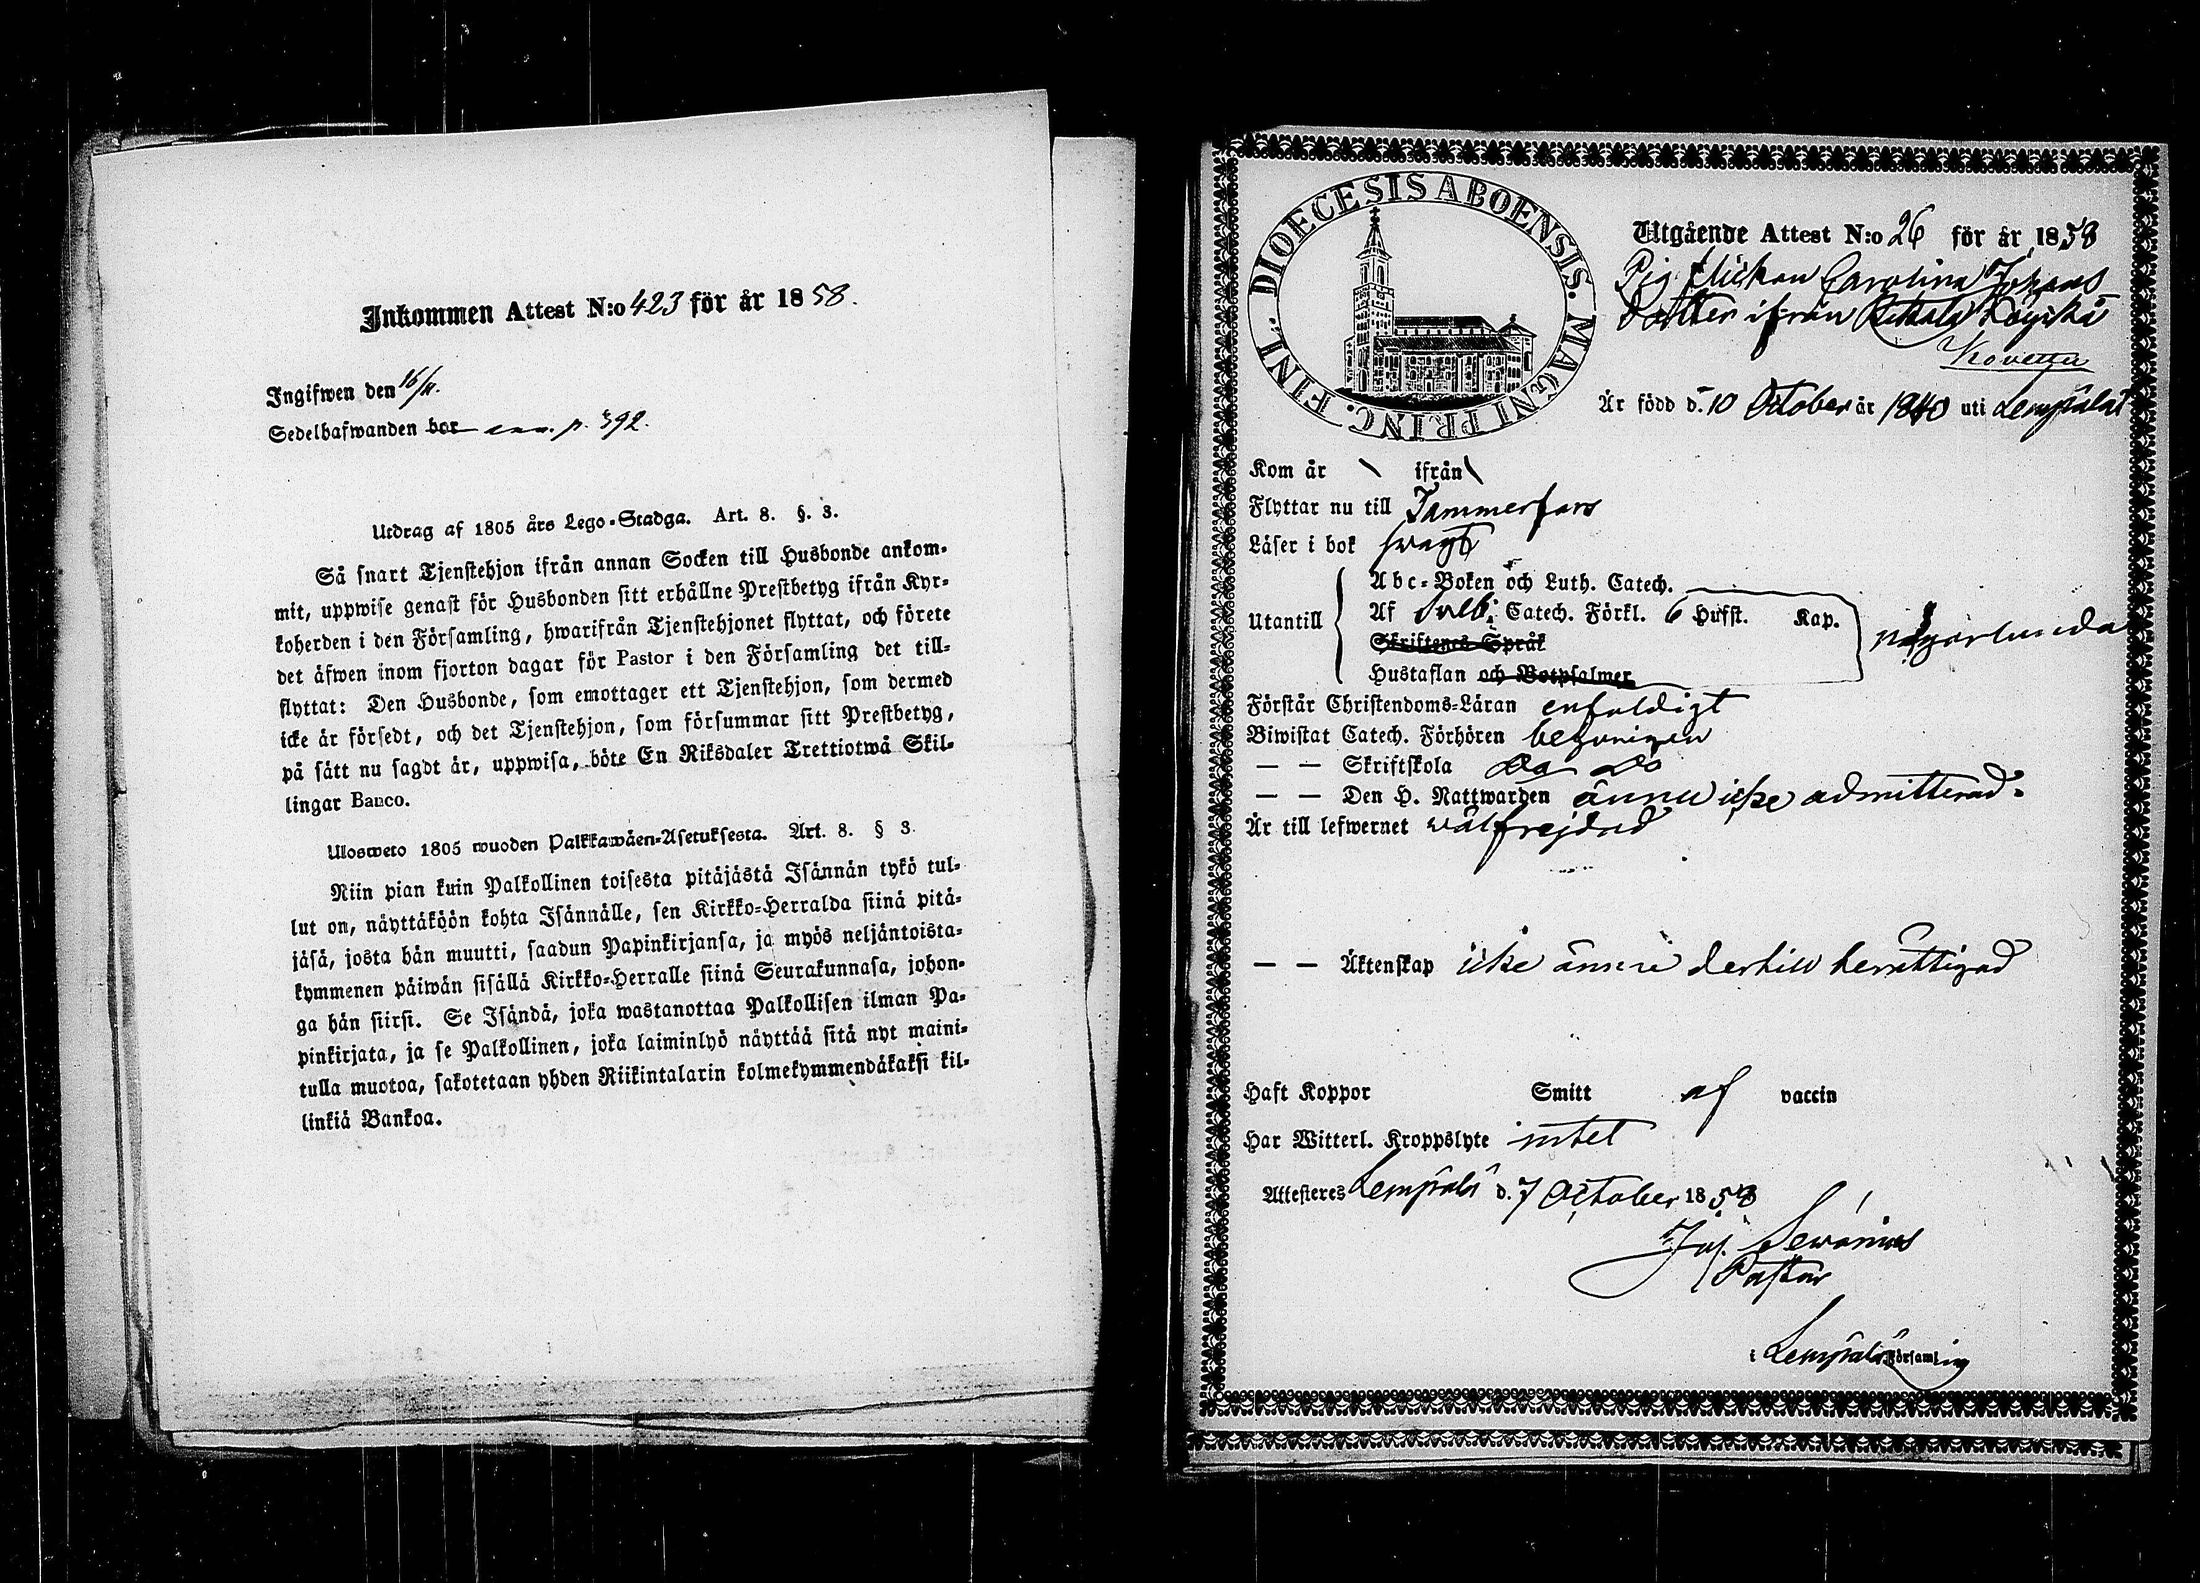 Inkommen Attest N:o 423 för år 1858.
Ingifwen den 16/11.
Sedelhafwanden bor p. 392.
Utdrag af 1805 års Lego-Stadga. Art. 8. §. 3.
Så snart Tjenstehjon ifrån annan Socken till Husbonde ankom-
mit, uppwise genast för Husbonden sitt erhållne Prestbetyg ifrån Kyr-
koherden i den Församling, hwarifrån Tjenstehjonet flyttat, och förete
det äfwen inom fjorton dagar för Pastor i den Församling det till-
flyttat: Den Husbonde, som emottager ett Tjenstehjon, som dermed
icke är försedt, och det Tjenstehjon, som försummar sitt Prestbetyg,
på sätt nu sagdt är, uppwisa, böte En Riksdaler Trettiotwå Skil-
lingar Banco.
Ulosweto 1805 wuoden Palkkawäen-Asetuksesta. Art. 8. § 3.
Niin pian kuin Palkollinen toisesta pitäjästä Isännän tykö tul-
lut on, näyttäköön kohta Isännälle, sen Kirkko-Herralda siinä pitä-
jäsä, josta hän muutti, saadun Papinkirjansa, ja myös neljäntoista-
kymmenen päiwän sisällä Kirkko-Herralle siinä Seurakunnasa, johon-
ga hän siirsi. Se Isändä, joka wastanottaa Palkollisen ilman Pa-
pinkirjata, ja se Palkollinen, joka laiminlyö näyttää sitä nyt maini-
tulla muotoa, sakotetaan yhden Riikintalarin kolmekymmendäkaksi kil-
linkiä Bankoa.
DIOECESIS ABOENSIS. MAGNI PRINC. FINL.
Utgående Attest N:o 26 för år 1858
Pig flickan Carolina Johans
Dotter ifrån
Är född d. 10 October år 1840 uti Lempälä
Kom år \ ifrån \
Flyttar nu till Tammerfors
Läser i bok swagt
Utantill
Abc-Boken och Luth. Catech.
Af Sweb. Catech. Förkl. 6 Hufst. Kap.
Skriftenes Språk
Hustaflan och Botpsalmer
någorlunda
Förstår Christendoms-Läran enfaldigt
Biwistat Catech. Förhören begynnelsen
— — Skriftskola Do Do
— — Den H. Nattwarden ännu icke admitterad.
Är till lefwernet wälfrejdad
— — Äktenskap icke ännu dertill berättigad
Haft Koppor Smitt af vaccin
Har Witterl. Kroppslyte intet
Attesteres Lempälä d. 7 October 1858
Jos. Sewonius
Pastor
i Lempälä Församling